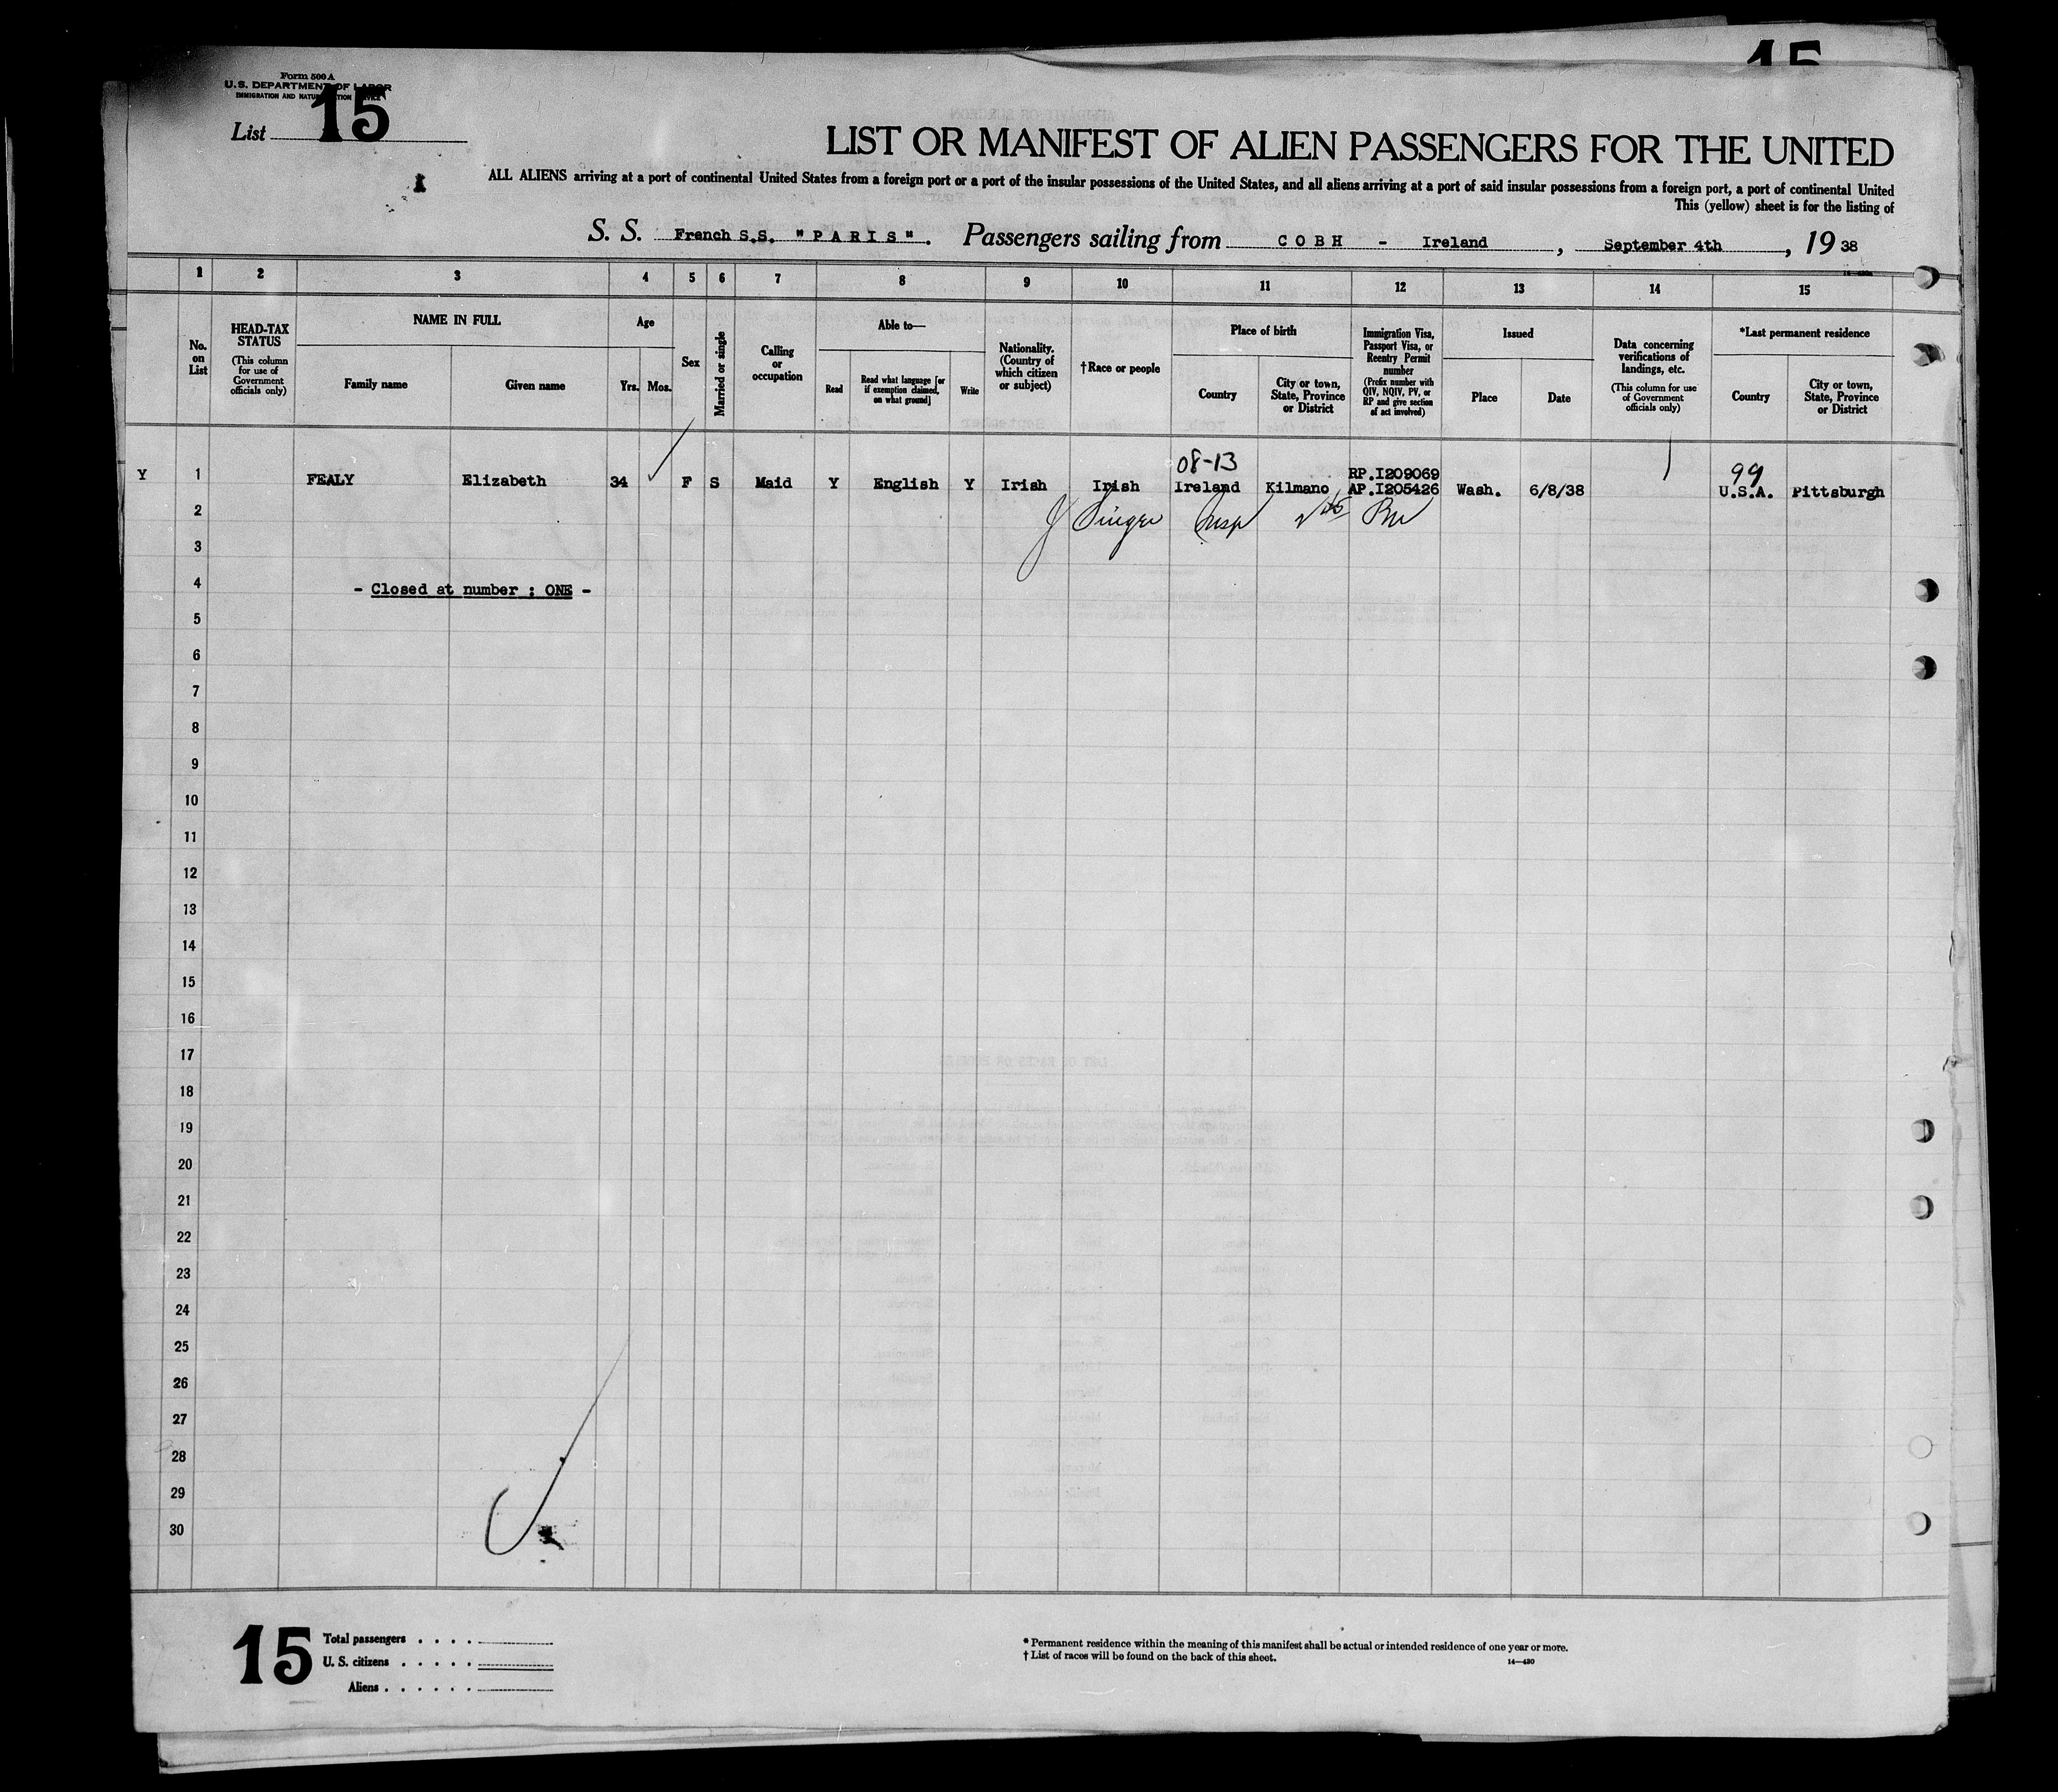 15
Form 500 A
U.S. DEPARTMENT OF LABOR
IMMIGRATION AND NATURALIZATION SERVICE
List 15
LIST OR MANIFEST OF ALIEN PASSENGERS FOR THE UNITED
ALL ALIENS arriving at a port of continental United States from a foreign port or a port of the insular possessions of the United States, and all aliens arriving at a port of said insular possessions from a foreign port, a port of continental United
This (yellow) sheet is for the listing of
S. S. French S.S. "PARIS". Passengers sailing from COBH - Ireland, September 4th, 1938
1 2 3 4 5 6 7 8 9 10 11 12 13 14 15
No. on List
HEAD-TAX STATUS
(This column for use of Government officials only)
NAME IN FULL
Family name Given name
Age
Yrs. Mos.
Sex
Married or single
Calling or occupation
Able to—
Read
Read what language [or if exemption claimed, on what ground]
Write
Nationality. (Country of which citizen or subject)
†Race or people
Place of birth
Country
City or town, State, Province or District
Immigration Visa, Passport Visa, or Reentry Permit number
(Prefix number with QIV, NQIV, PV, or RP and give section of act involved)
Issued
Place Date
Data concerning verifications of landings, etc.
(This column for use of Government officials only)
*Last permanent residence
Country
City or town, State, Province or District
08-13
99
RP.I209069
Y 1 FEALY Elizabeth 34 F S Maid Y English Y Irish Irish Ireland Kilmano AP.I205426 Wash. 6/8/38 U.S.A. Pittsburgh
2
J Singer Insp
3
4 - Closed at number : ONE -
5
6
7
8
9
10
11
12
13
14
15
16
17
18
19
20
21
22
23
24
25
26
27
28
29
30
15
Total passengers . . . .
U. S. citizens . . . . .
Aliens . . . . . .
* Permanent residence within the meaning of this manifest shall be actual or intended residence of one year or more.
† List of races will be found on the back of this sheet.
14—430